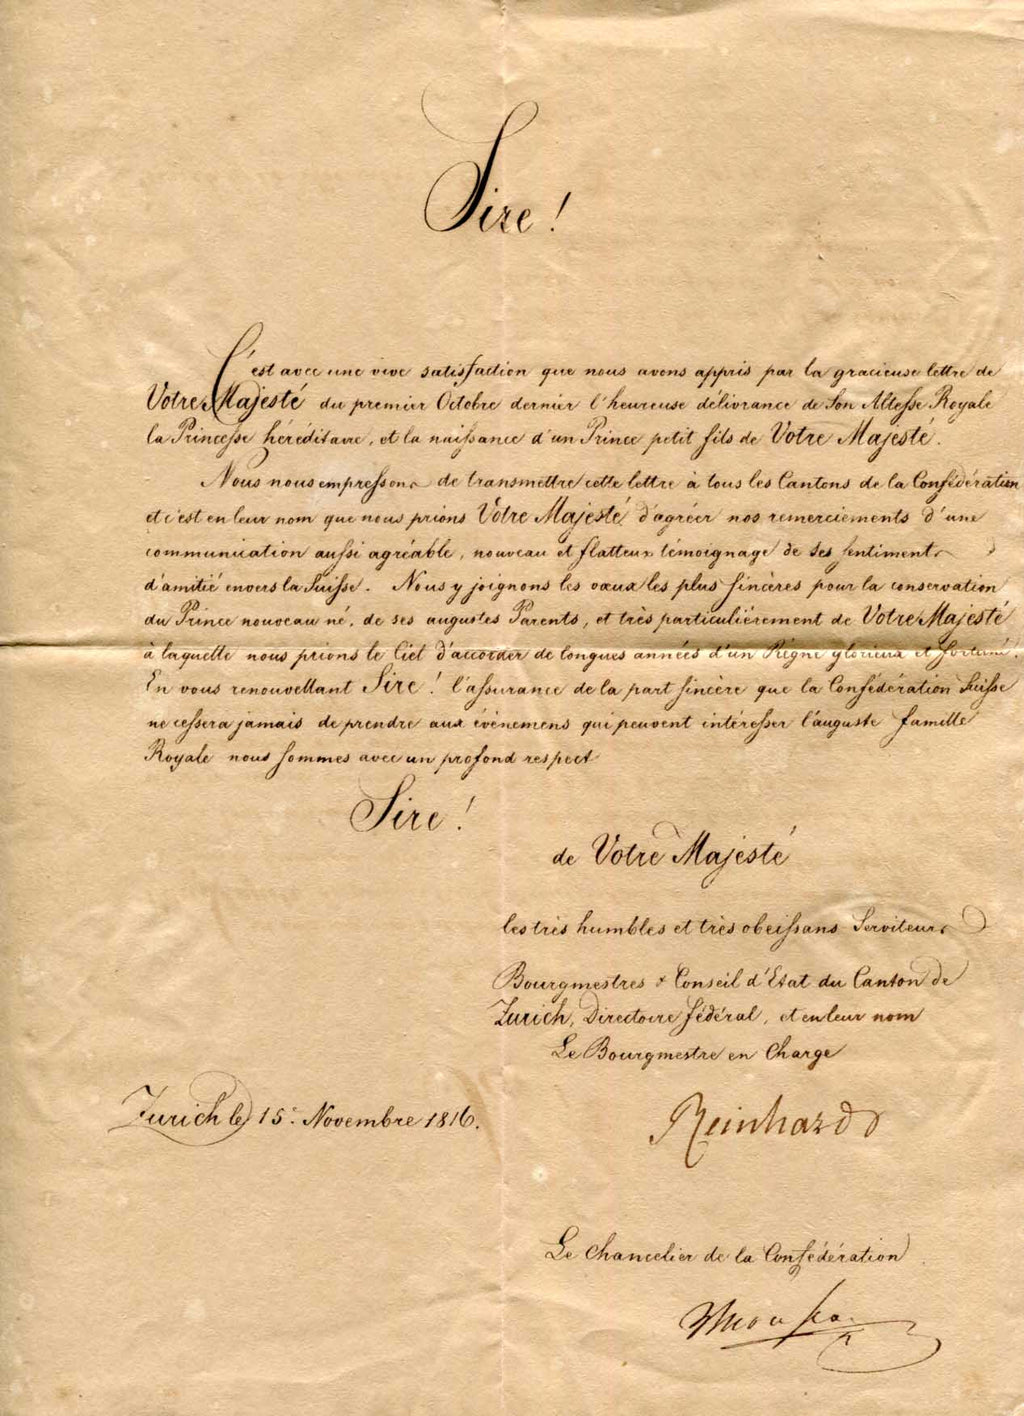 Sire!
C'est avec une vive satisfaction que nous avons appris par la gracieuse lettre de
Votre Majesté du premier Octobre dernier l'heureuse délivrance de Son Altesse Royale
la Princesse héréditaire, et la naissance d'un Prince petit fils de Votre Majesté.
Nous nous empressons de transmettre cette lettre à tous les Cantons de la Confédération
et c'est en leur nom que nous prions Votre Majesté d'agréer nos remerciements d'une
communication aussi agréable, nouveau et flatteux témoignage de ses sentiments
d'amitié envers la Suisse. Nous y joignons les vœux les plus sincères pour la conservation
du Prince nouveau né, de ses augustes Parents, et très particulièrement de Votre Majesté
à laquelle nous prions le Ciel d'accorder de longues années d'un Règne glorieux et fortuné.
En vous renouvellant Sire! l'assurance de la part sincère que la Confédération Suisse
ne cessera jamais de prendre aux évènemens qui peuvent intéresser l'auguste famille
Royale nous sommes avec un profond respect
Sire!
de Votre Majesté
les très humbles et très obeissans Serviteurs
Bourgmestres & Conseil d'Etat du Canton de
Zurich, Directoire fédéral, et en leur nom
Le Bourgmestre en Charge
Zurich le 15e Novembre 1816.
Reinhard
Le Chancelier de la Confédération
Mousson